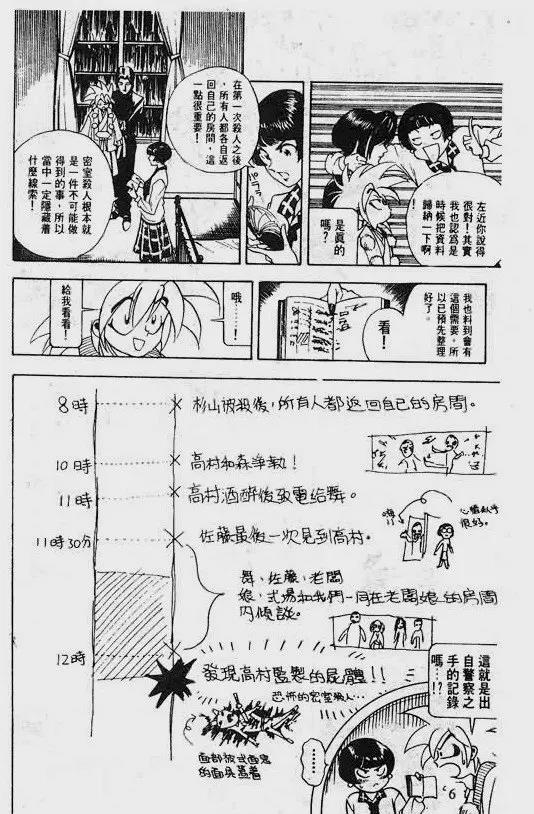 左近你說得
很對！其實
我也認爲是
時候把資料
歸納一下啊
是眞的
嗎？
在第一次殺人之後
，所有人都各自返
回自己的房間，這
一點很重要！
密室殺人根本就
是一件不可能做
得到的事，所以
當中一定隱藏着
什麼線索！
我也料到會有
這個需要，所
以已預先整理
好了。
看！
哦……！
給我看看！
8時
杉山被殺後，所有人都返回自己的房間。
10時
高村和森爭執！
11時
高村酒醉後致電給舞。
11時30分
佐藤最後一次見到高村。
很好。
舞、佐藤、老闆
娘、式場和我們一同在老闆娘的房間
內傾談。
12時
發現高村監製的屍體！！
恐怖的密室殺人…
面部被
的面具蓋着
這就是出
自警察之
手的記錄
嗎…!?
……